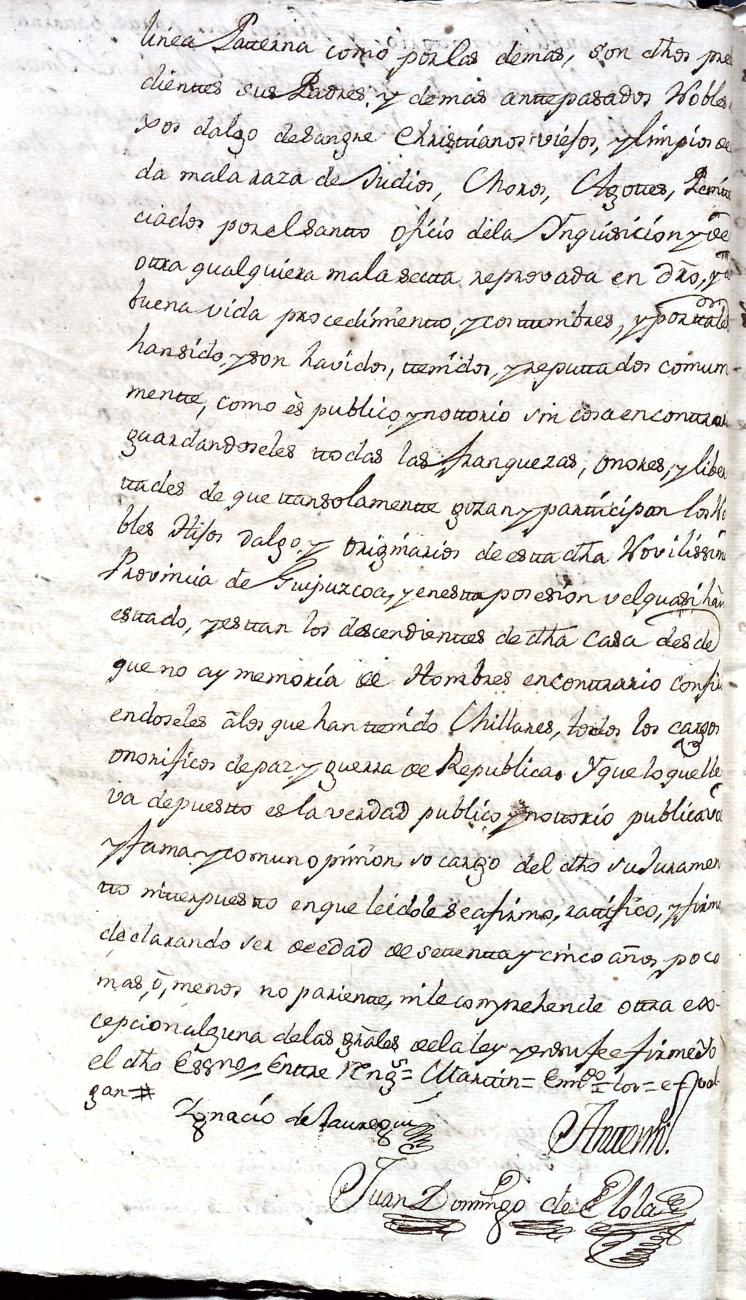 linea Patterna como por las demas, son dhos pre
dienttes sus Padres, y demas anttepasados Nobles
xos dalgo de sangre Christtianos viejos, y limpios de
da mala raza de Judios, Moros, Agottes, Penite
ciados por el Santto oficio de la Ynquisicion y de
otra qualquiera mala sectta reprovada en dro, y de
buena vida procedimientto, y costtumbres, y por ttales
han sido, y son havidos, ttenidos, y reputtados comun
mentte, como es publico, y nottorio sin cosa en conttrar
guardandoseles ttodas las franquezas, onores, y liber
ttades de que ttan solamentte gozan y partticipan los No
bles Hijos dalgo, y originarios de estta dha Novilissim
Provincia de Guipuzcoa, y en estta posesion vel quasi han
esttado, y esttan los descendienttes de dha casa desde
que no ay memoria de Hombres en conttrario confir
endoseles a los que han ttenido Millares, todos los cargos
onorificos de paz y guerra de Republica. Y que lo que lle
va depuestto es la verdad publico y nottorio publica vo
y fama y comun opinion so cargo del dho su Juramen
tto intterpuestto en que leidole se afirmo, rattifico, y firmo
declarando ser de edad de settentta y cinco años, poco
mas, ò, menos no parientte, ni le comprehende ottra ex-
cepcion alguna de las grales de la ley y en su fee firme Yo
el dho Essno// Enttre rengs = Marttin = Emdo = lor = ef = val-
gan #
Ignacio de Jauregui
Anttemi.
Juan Domingo de Elola